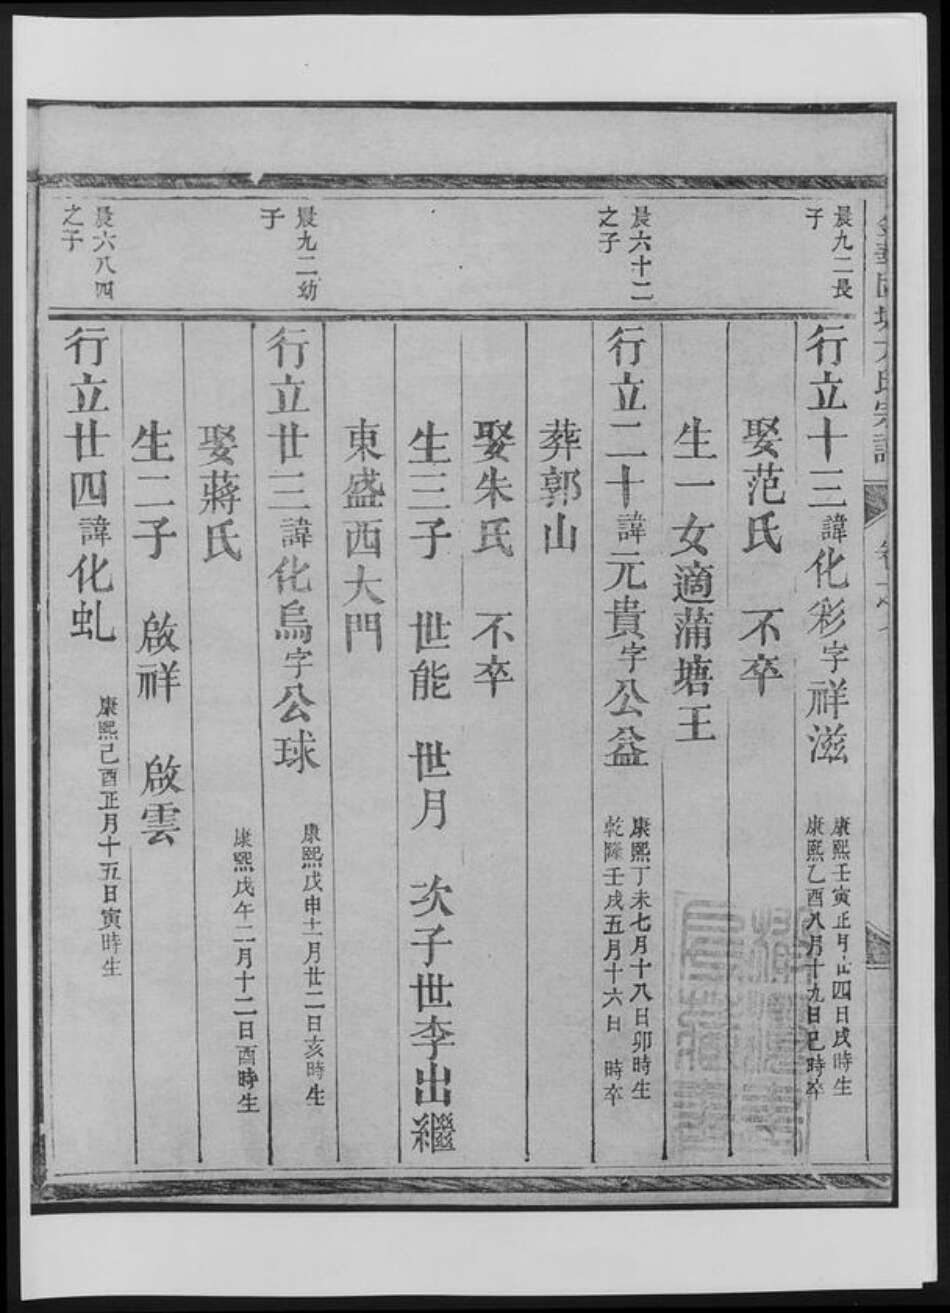 氏宗譜
晨九二長
子
行立十三諱化彩字祥滋
康熙壬寅正月廿四日戌時生
康熙乙酉八月十九日巳時卒
娶范氏 不卒
生一女適蒲塘王
晨六十二
之子
行立二十諱元貴字公益
康熙丁未七月十八日卯時生
乾隆壬戌五月十六日 時卒
葬郭山
娶朱氏 不卒
生三子 世能 世月 次子世李出繼
東盛西大門
晨九二幼
子
行立廿三諱化烏字公球
康熙戊申十一月廿二日亥時生
娶蔣氏
康熙戊午二月十二日酉時生
生二子 啟祥 啟雲
晨六八四
之子
行立廿四諱化虬
康熙己酉正月十五日寅時生